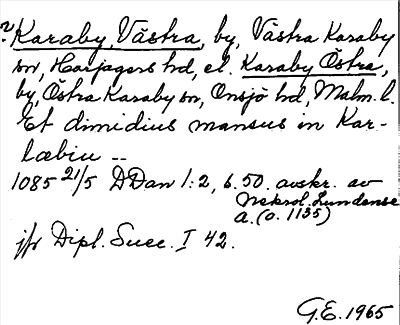 ? Karaby, Västra, by, Västra Karaby
sn, Harjagers hd, el. Karaby Östra,
by, Östra Karaby sn, Onsjö hd, Malm. l.
Et dimidius mansus in Kar-
læbiu --
1085 21/5 DDan 1:2, s. 50. avskr. av
Nekrol. Lundense
A. (o. 1135)
jfr Dipl. Suec. I 42.
G.E. 1965